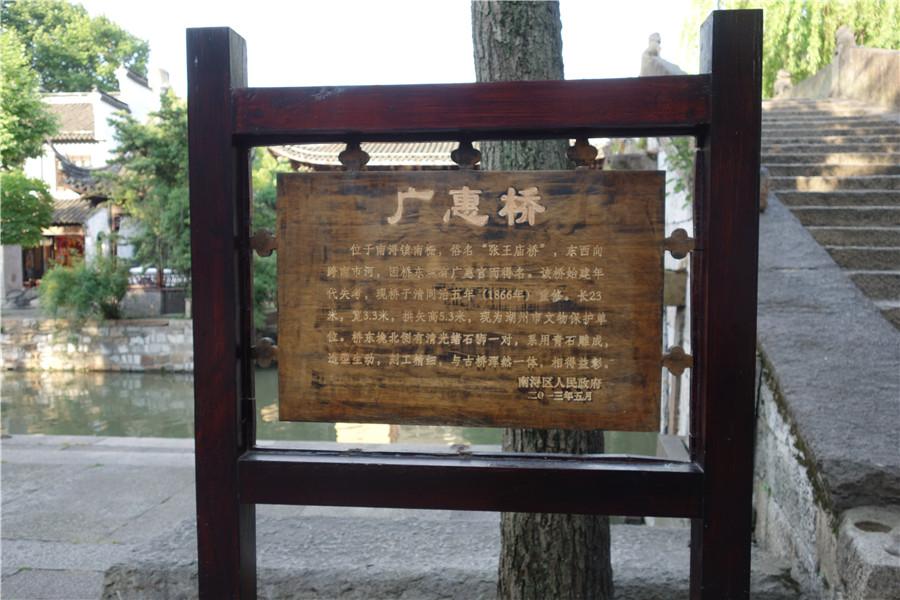 广惠桥
位于南浔镇南栅，俗名“张王庙桥”，东西向
跨南市河，因桥东 有广惠宫而得名。该桥始建年
代失考，现桥于清同治五年（1866年）重修。长23
米，宽3.3米，拱矢高5.3米，现为湖州市文物保护单
位。桥东堍北侧有清光绪石狮一对，系用青石雕成，
造型生动，刻工精细，与古桥浑然一体，相得益彰。
南浔区人民政府
二〇一三年五月